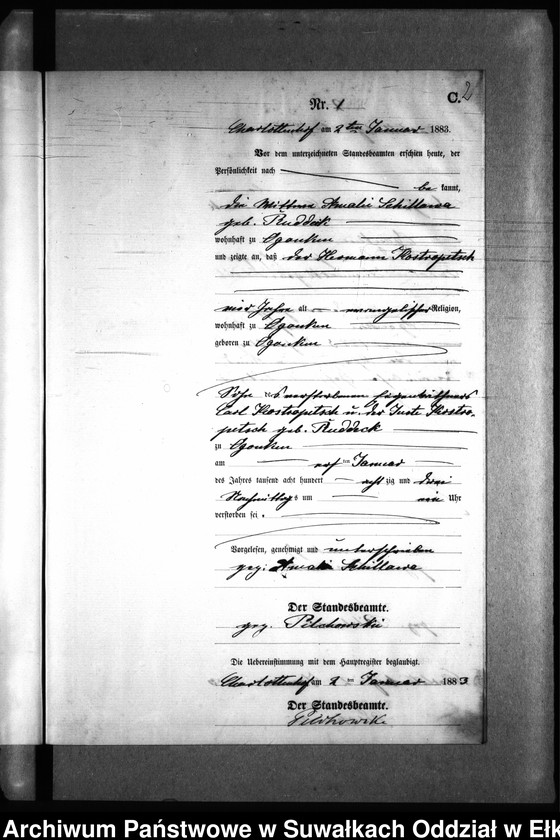 C. 2
Nr. 1
Charlottenhof am 2 ten Januar 1883.
Vor dem unterzeichneten Standesbeamten erschien heute, der
Persönlichkeit nach
be kannt,
die Wittwe Amalie Schillawa
geb. Ruddeck
wohnhaft zu Ogonken
und zeigte an, daß der Hermann Kostropetsch
vier Jahre alt evangelischer Religion,
wohnhaft zu Ogonken
geboren zu Ogonken
Sohn des verstorbenen Eigenkäthners
Carl Kostropetsch u. der Juste Kostro-
petsch geb. Ruddeck
zu Ogonken
am ersten Januar
des Jahres tausend acht hundert acht zig und drei
Nachmittags um ein Uhr
verstorben sei.
Vorgelesen, genehmigt und unterschrieben
gez: Amalie Schillawa
Der Standesbeamte.
gez. Pilchowski
Die Uebereinstimmung mit dem Hauptregister beglaubigt.
Charlottenhof am 2 ten Januar 1883
Der Standesbeamte.
Pilchowski
Archiwum Państwowe w Suwałkach Oddział w Ełk